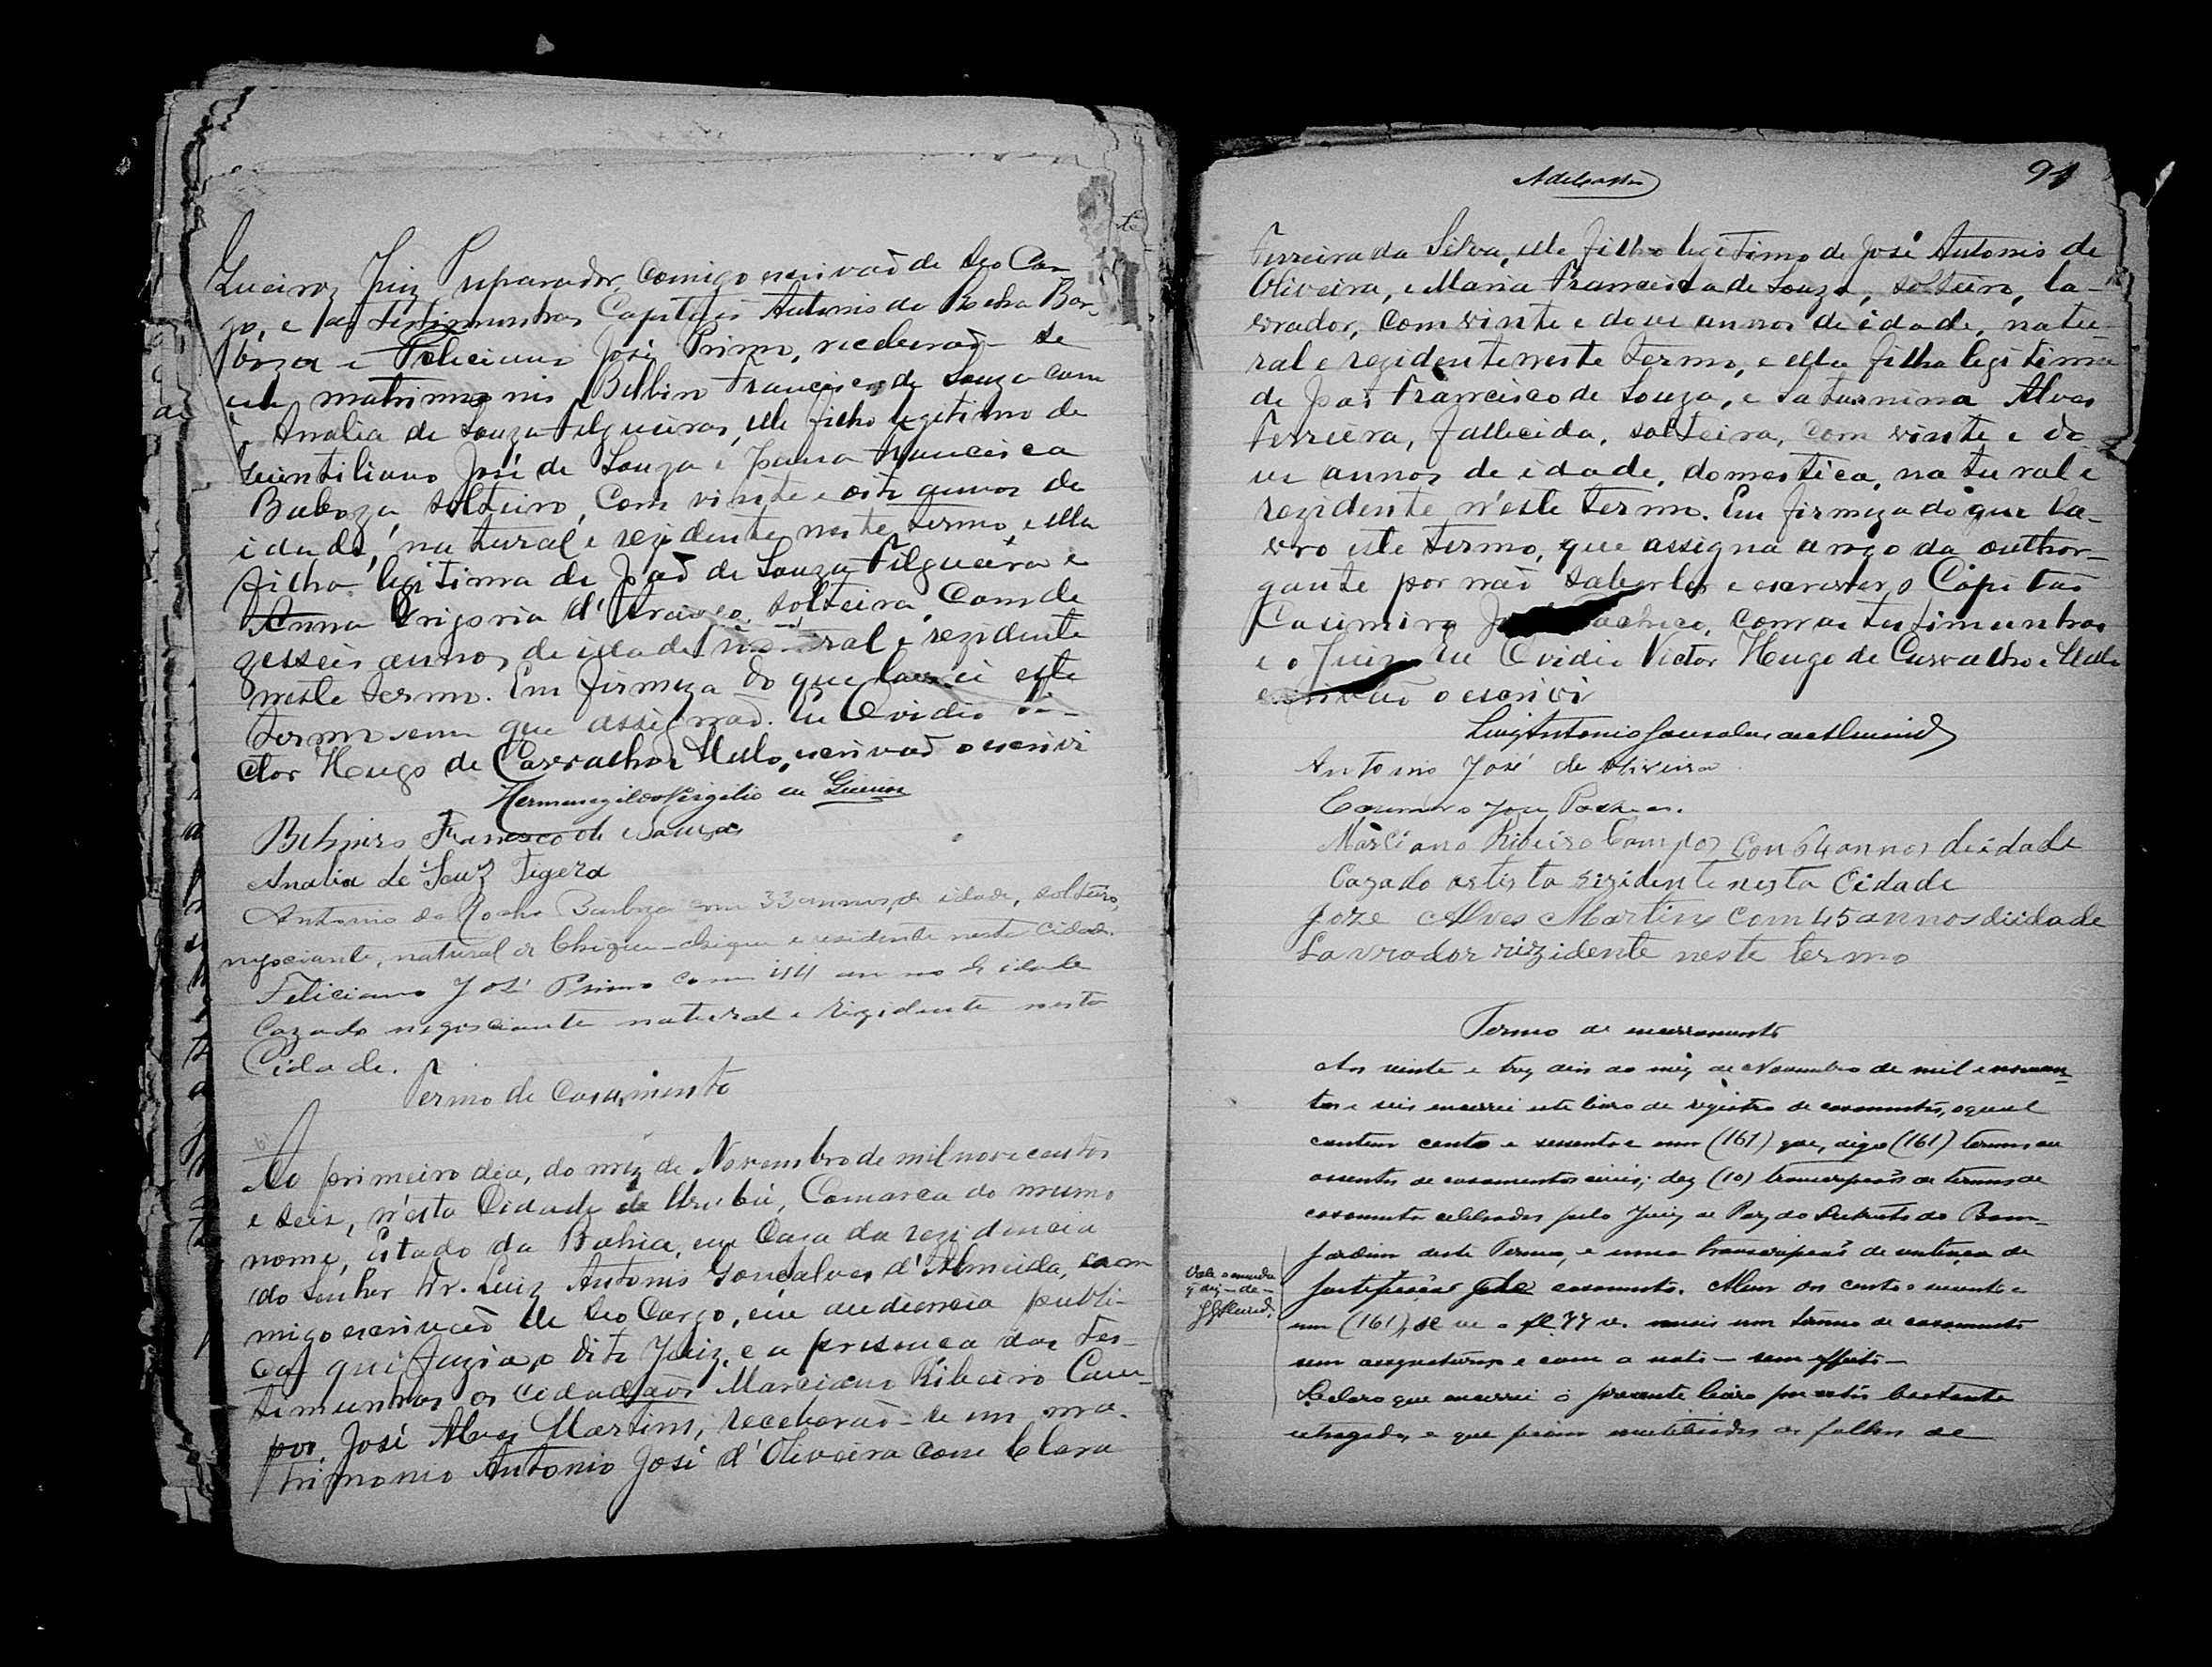 Queiroz Juiz Preparador, comigo escrivaõ de seo Car-
go, e as testimunhas Capitães Antonio da Rocha Bar-
boza e Feliciano José Primo, receberaõ-se
em matrimonio Belbino Francisco de Souza com
Analia de Souza Filgueiras, elle filho legitimo de
Quintiliano José de Souza e Joana Francisca
Baboza, solteiro, Com vinte e oito annos de
idade, natural e rezidente neste termo, e ella
filha legitima de Joaõ de Souza Filgueira e
Anna Grigoria d'Araujo, solteira, Com de
zesseis annos de idade natural e rezidente
neste termo. Em firmeza do que lavrei este
termo em que assignaõ. Eu Ovidio Vi-
ctor Hugo de Carvalho e Mello, escrivaõ o escrivi
Hermenegildo Virgilio de Queiroz
Francisco de Souza
Analia de Souz Figera
Antonio da Rocha Barboza com 33 annos, de idade, solteiro,
negociante, natural de Chique-chique e residente nesta cidade.
Feliciano José Primo com 44 annos de idade
Cazado negociante natural e rizidente nesta
Cidade.
Termo de Casamento
Ao primeiro dia, do mez de Novembro de mil nove centos
e seis, n'esta Cidade de Urubú, Comarca do mesmo
nome, Estado da Bahia, em Casa da rezidencia
do Senhor Dr. Luiz Antonio Gonçalves d'Almeida, com
migo escrivaõ de seo Cargo, em audiencia publi-
ca, que fazia o dito Juiz, e a presença das tes-
timunhas os cidadaõs Marciano Ribeiro Cam-
pos, José Alves Martins, receberaõ-se em ma-
trimonio Antonio José d'Oliveira com Clara
91
Ferreira da Silva, elle filho legitimo de José Antonio de
Oliveira, e Maria Francisca de Souza, solteiro, la-
vrador, com vinte e dous annos de idade, natu-
ral e rezidente neste termo, e ella filha legitima
de Joaõ Francisco de Souza, e Saturnina Alves
Ferreira, fallecida, solteira, com vinte e do
us annos de idade, domestica, natural e
rezidente n'este termo. Em firmeza do que la-
vro este termo, que assigna a rogo da outhor-
gante por naõ saber ler e escrever, o Capitaõ
Casimiro com as testimunhas
e o Juiz. Eu Ovidio Victor Hugo de Carvalho e Mello
escrivaõ o escrivi
Luiz Antonio Gonsalves de Almeida
Antonio José de Oliveira
Casimiro José Pacheco.
Marciano Ribeiro Campos Com 64 annos de idade
Cazado artista rizidente nesta Cidade
Joze Alves Martins com 45 annos di idade
Lavrador rizidente neste termo
Termo de encerramento
Aos vinte e tres dias do mez de Novembro de mil e novecen-
tos e seis encerrei este livro de registro de casamentos, o qual
contem cento e sessenta e um (161) que, digo (161) termos ou
assentos de casamentos civis; dez (10) transcripções de termos de
casamentos celebrados pelo Juiz de Paz do Districto do Bom-
Jardim deste Termo, e uma transcripçaõ de sentença de
justificaçaõ de casamento. Alem dos cento e sessenta e
um (161), se ve a fl. 77 v. mais um termo de casamento
sem assignaturas e com a nota - sem effeito -
Declaro que encerrei o presente livro por estár bastante
estragado, e que ficam inutilisadas as folhas de
Vale a emenda
q diz - de -